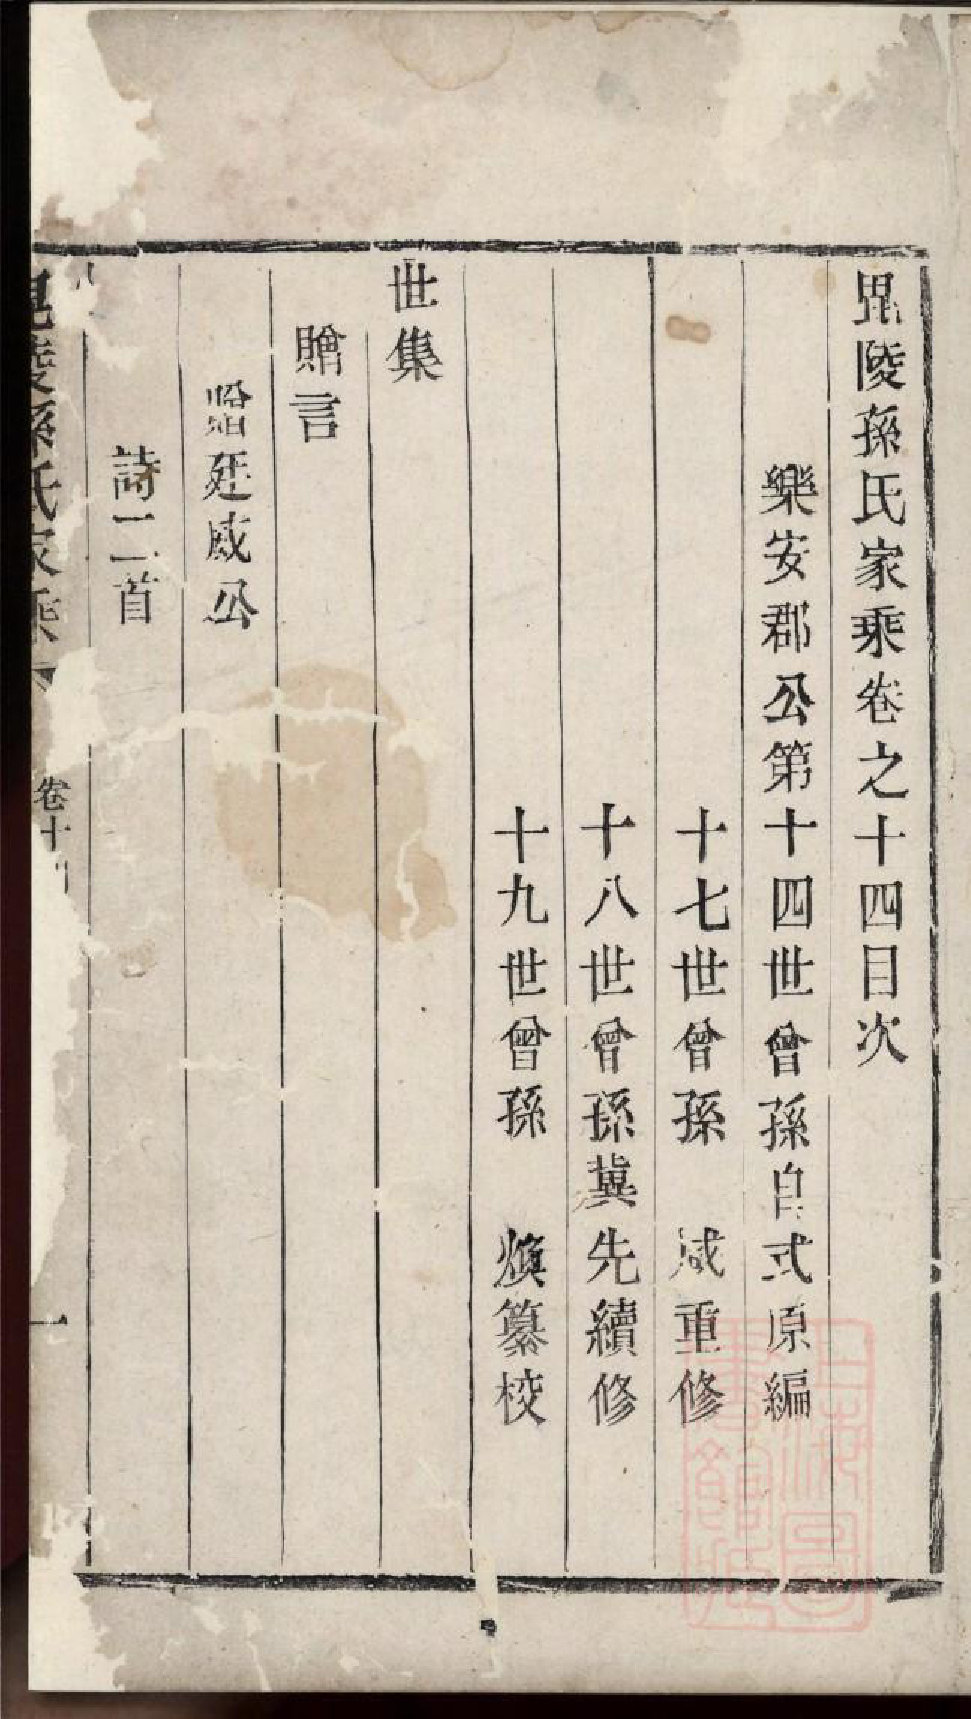 毘陵孫氏家乘卷之十四目次
樂安郡公第十四世曾孫自式原編
十七世曾孫 咸重修
十八世曾孫冀先續修
十九世曾孫 煥纂校
世集
贈言
贈廷咸公
詩二首
毘陵孫氏家乘
卷十四
一
上海圖書館藏